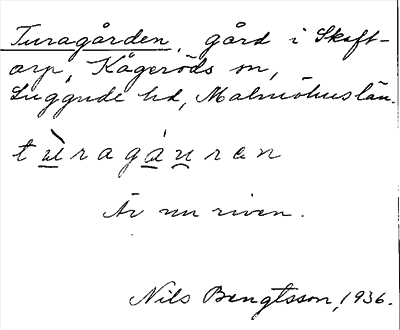 Turagården, gård i Skaft-
arp, Kågeröds sn,
Luggude hd, Malmöhus län.
tùragáu̯ran
Är nu riven.
Nils Bengtsson, 1936.